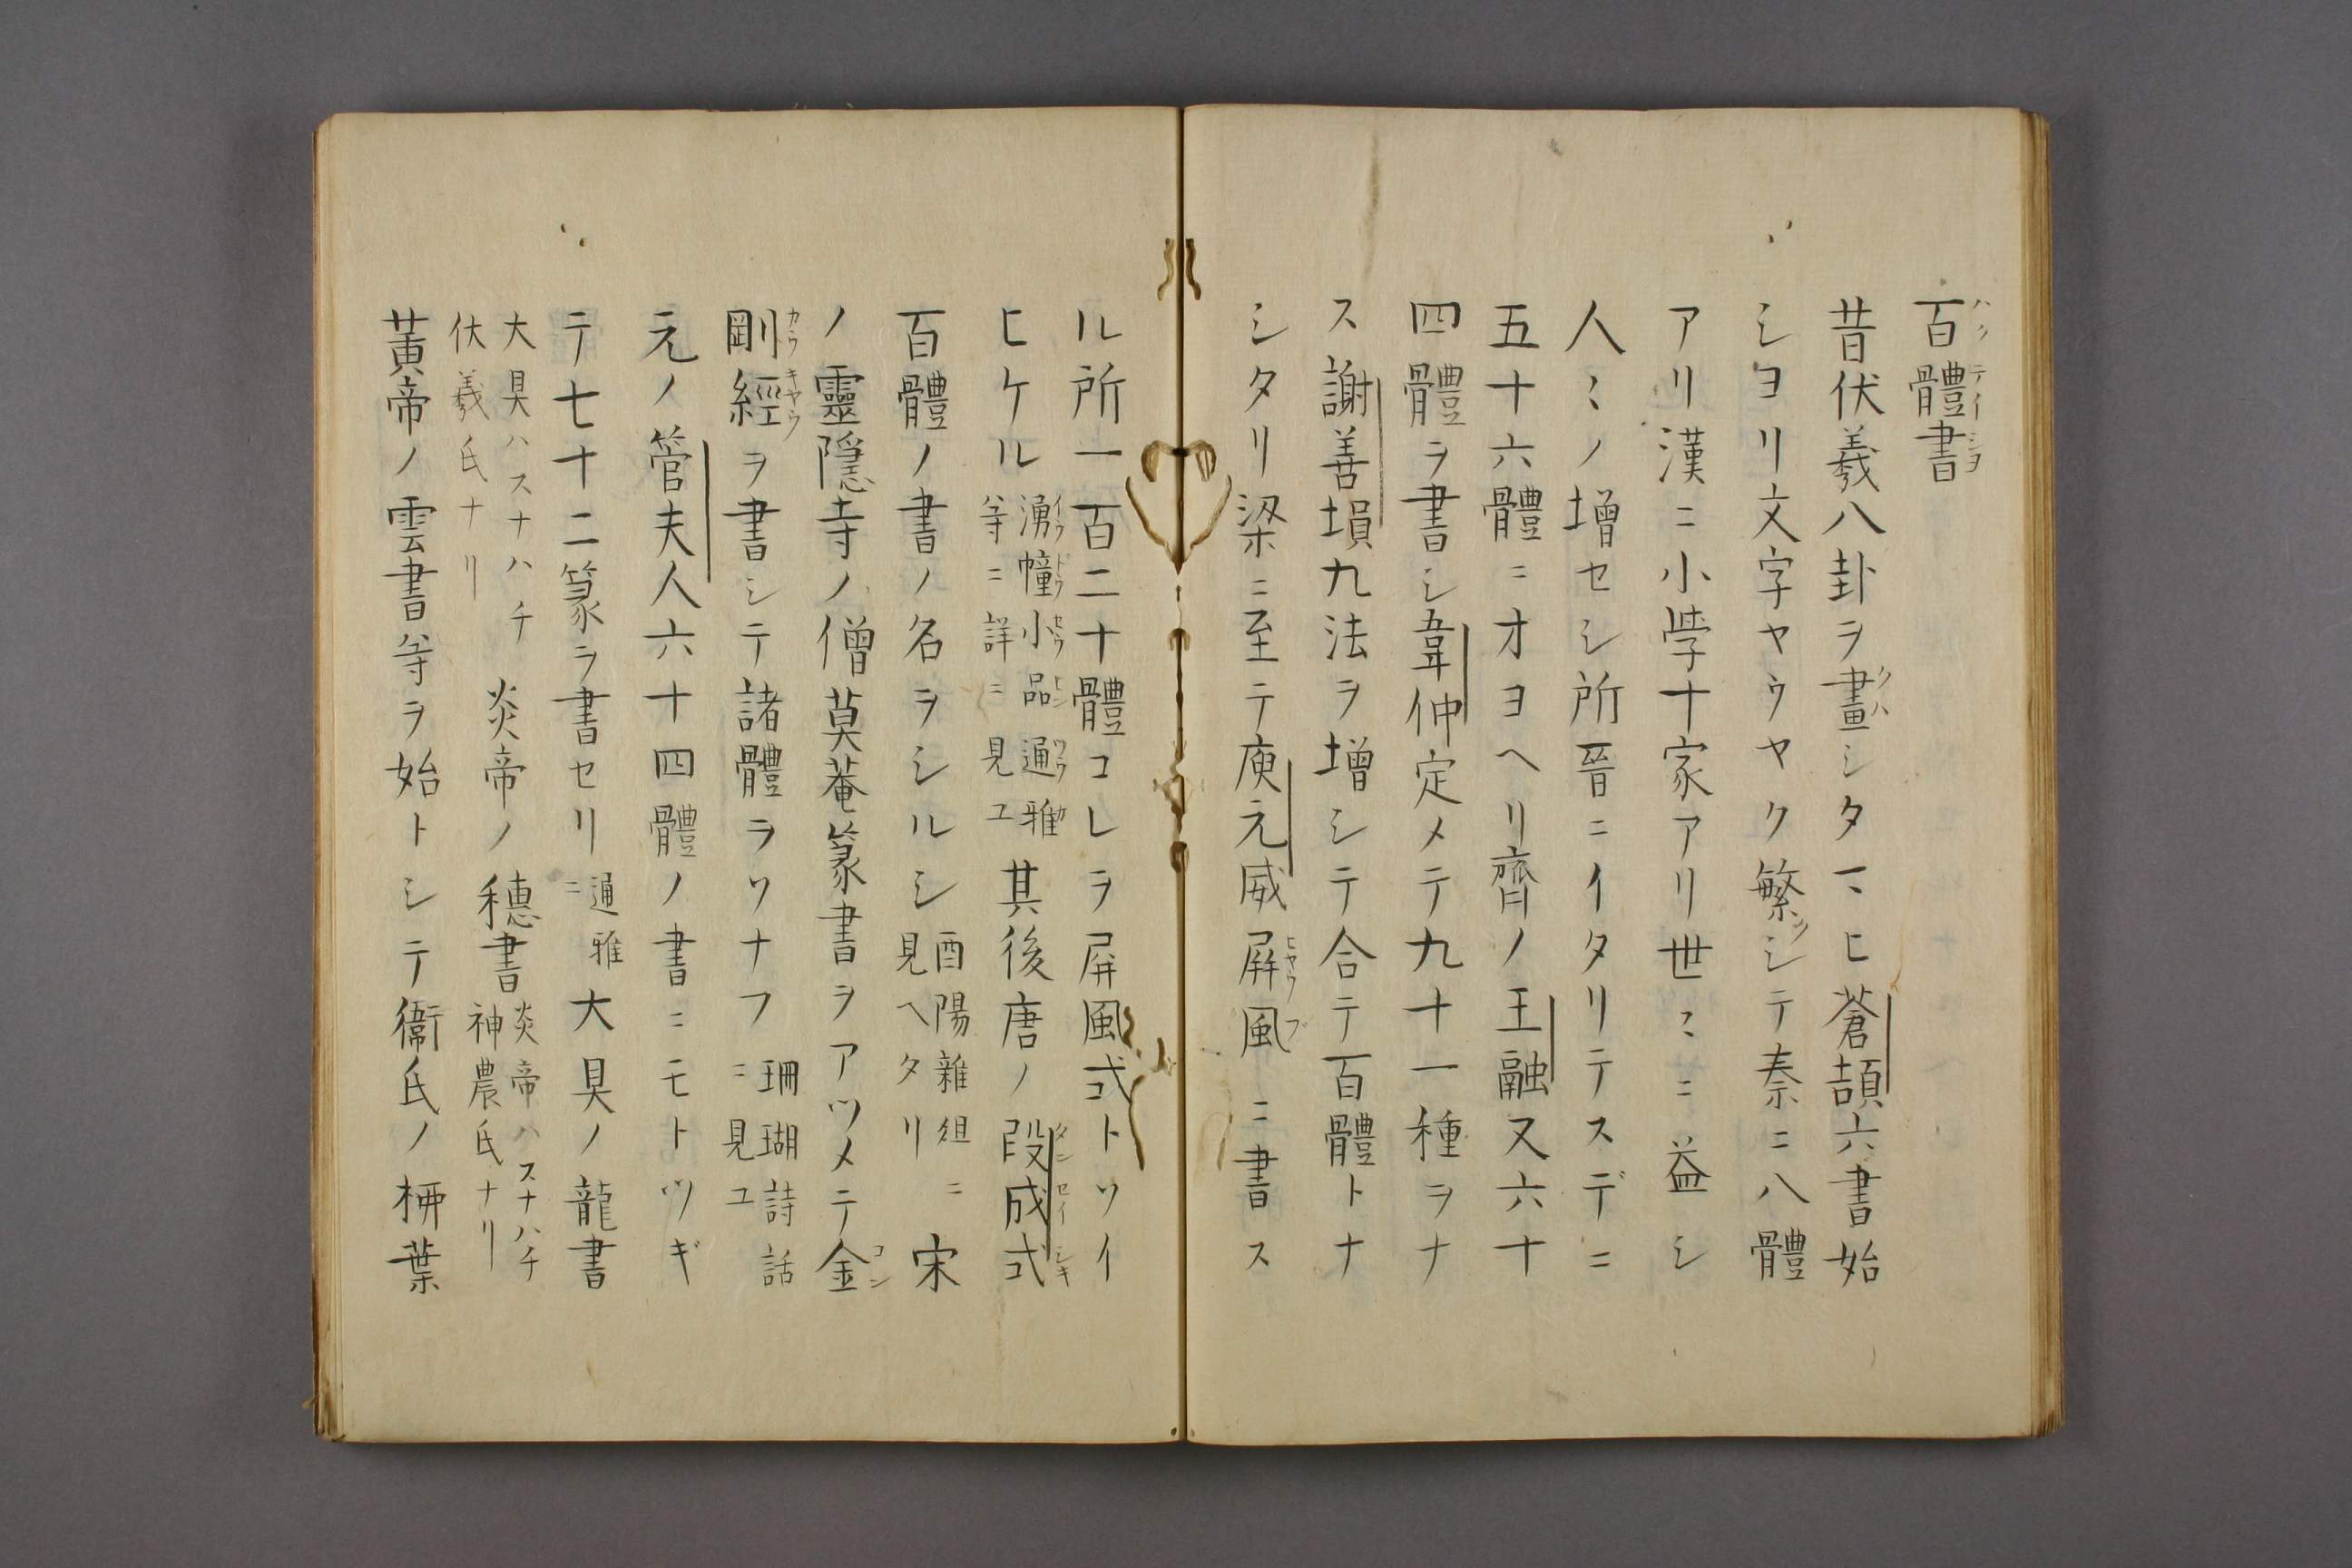 百體書
昔伏羲八卦ヲ畫シタマヒ蒼頡六書始
シヨリ文字ヤウヤク繁シテ秦ニ八體
アリ漢ニ小學十家アリ世〻ニ益シ
人〻ノ増セシ所晉ニイタリテスデニ
五十六體ニオヨヘリ齊ノ王融又六十
四體ヲ書シ韋仲定メテ九十一種ヲナ
ス謝善塤九法ヲ増シテ合テ百體トナ
シタリ梁ニ至テ庾元威屏風ニ書ス
ル所一百二十體コレヲ屏風式トツイ
ヒケル湧幢小品通雅等ニ詳ニ見ユ其後唐ノ段成式
百體ノ書ノ名ヲシルシ酉陽雜俎ニ見ヘタリ宋
ノ靈隱寺ノ僧莫菴篆書ヲアツメテ金
剛經ヲ書シテ諸體ヲソナフ珊瑚詩話ニ見ユ
元ノ管夫人六十四體ノ書ニモトツギ
テ七十二篆ヲ書セリ通雅ニ大昊ノ龍書
大昊ハスナハチ伏羲氏ナリ炎帝ノ穗書炎帝ハスナハチ神農氏ナリ
黄帝ノ雲書等ヲ始トシテ衞氏ノ栁葉